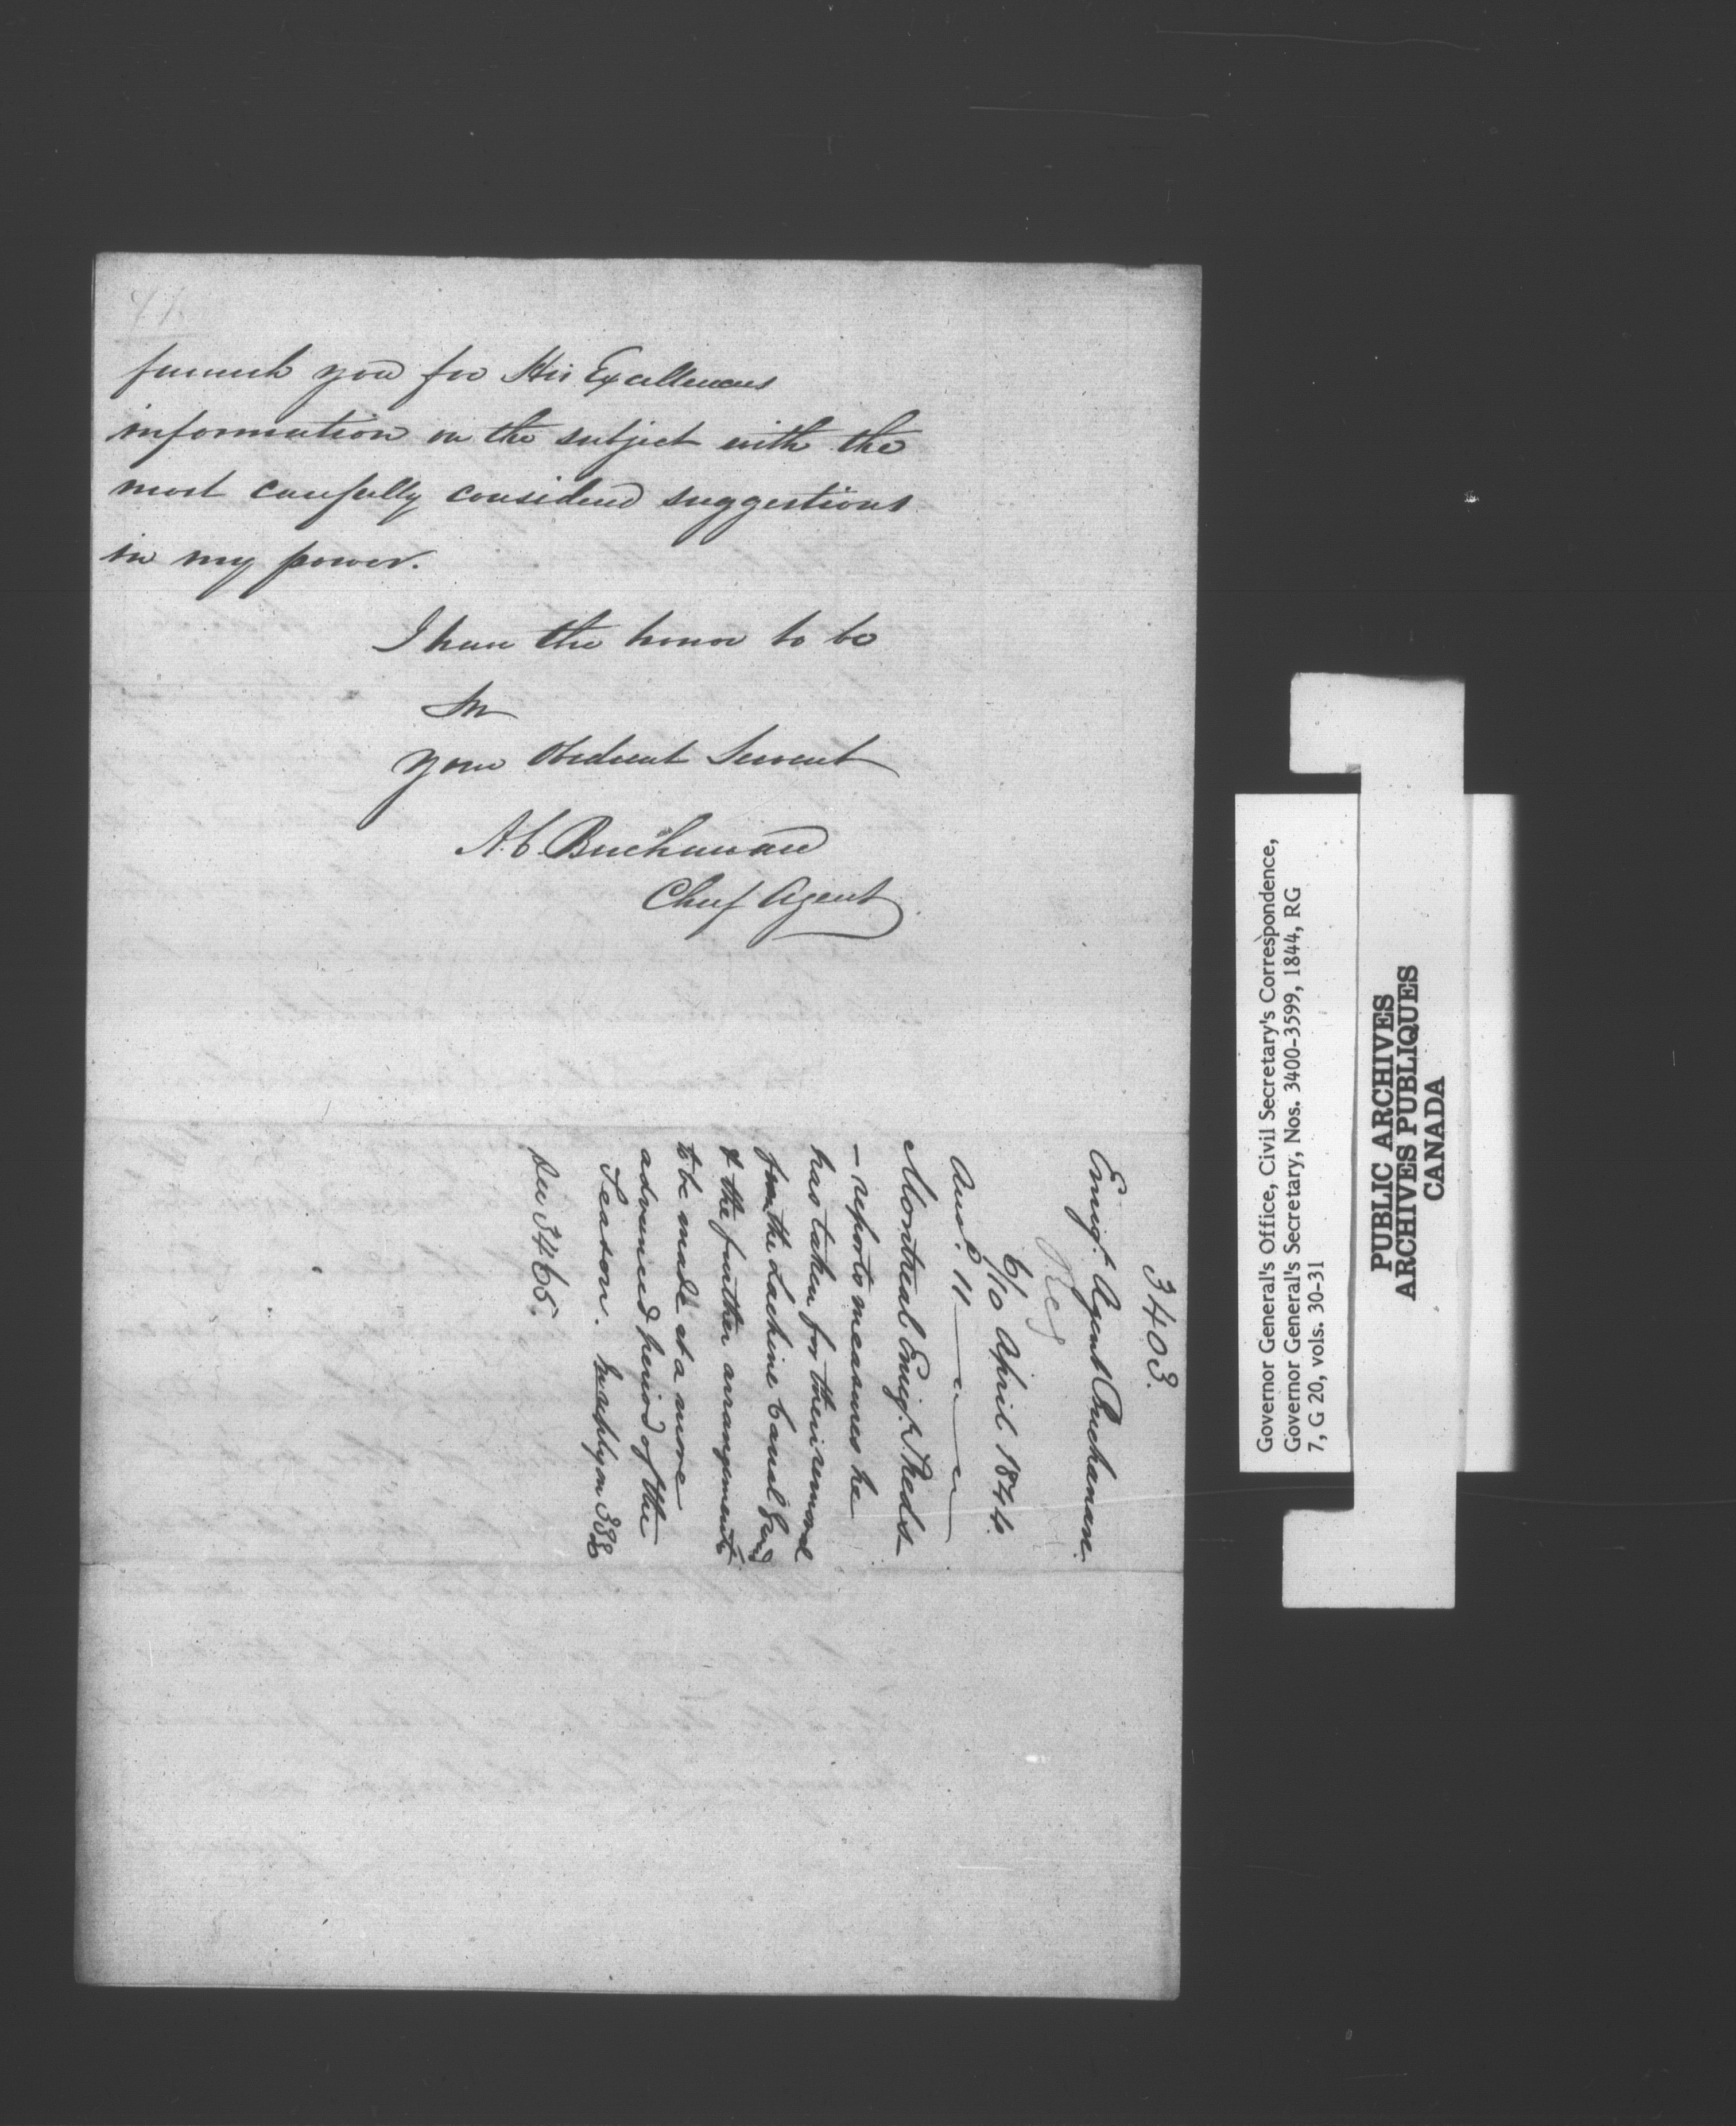 furnish you for His Excellencys
information on the subject with the
most carefully considered suggestions
in my power.
I have the honor to be
Sir
Your Obedient Servant
A.C. Buchanan
Chief Agent
3403.
Emigt. Agent Buchanan.
6/10 April 1844.
Ansd. 11 — " — " —
Montreal Emigt. Sheds
- reports measures he
has taken for their removal
from the Lachine Canal Grnd
& the further arrangements
to be made at a more
advanced period of the
Season. In reply on 338
See 3465.
Governor General's Office, Civil Secretary's Correspondence,
Governor General's Secretary, Nos. 3400-3599, 1844, RG
7, G 20, vols. 30-31
PUBLIC ARCHIVES
ARCHIVES PUBLIQUES
CANADA